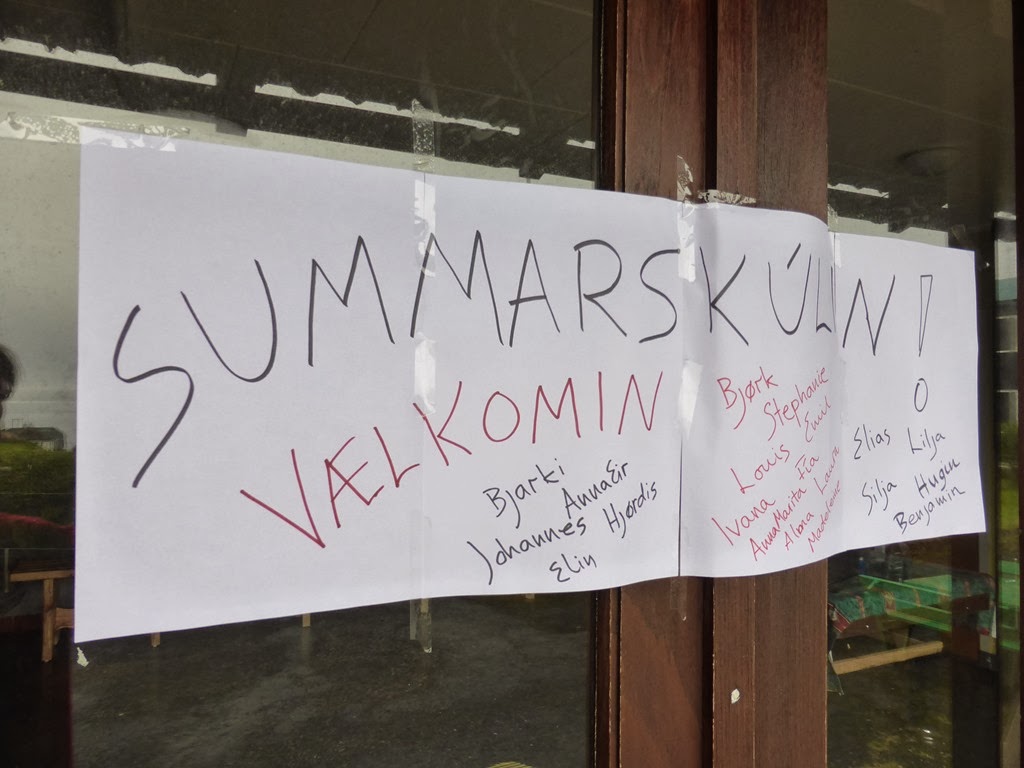 SUMMARSKÚLIN!
VÆLKOMIN
Bjarki
AnnaEir
Johannes Hjørdis
Elin
Bjørk
Stephanie
Louis Emil
Ivana Fía
AnnaMarita Laura
Alma Madeleine
Elias Lilja
Silja Hugin
Benjamin